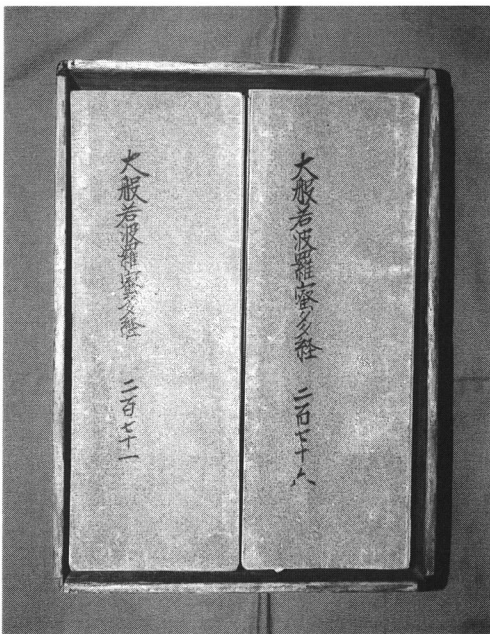 大般若波羅蜜多経 二百七十六
大般若波羅蜜多経 二百七十一